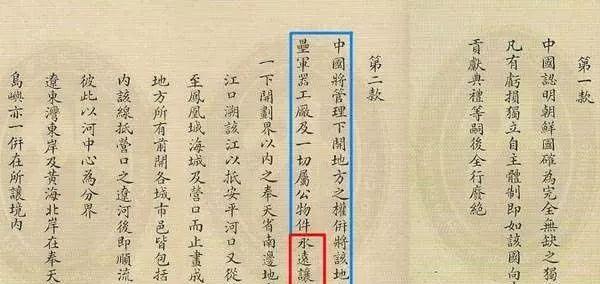 第一款
中國認明朝鮮國確為完全無缺之獨
凡有虧損獨立自主體制即如該國向
貢獻典禮等嗣後全行廢絶
第二款
中國將管理下開地方之權併將該地
壘軍器工廠及一切屬公物件永遠讓
一下開劃界以內之奉天省南邊地
江口溯該江以抵安平河口又從
至鳳凰城海城及營口而止畫成
地方所有前開各城市邑皆包括
內該線抵營口之遼河後即順流
彼此以河中心為分界
遼東灣東岸及黃海北岸在奉天
島嶼亦一併在所讓境內